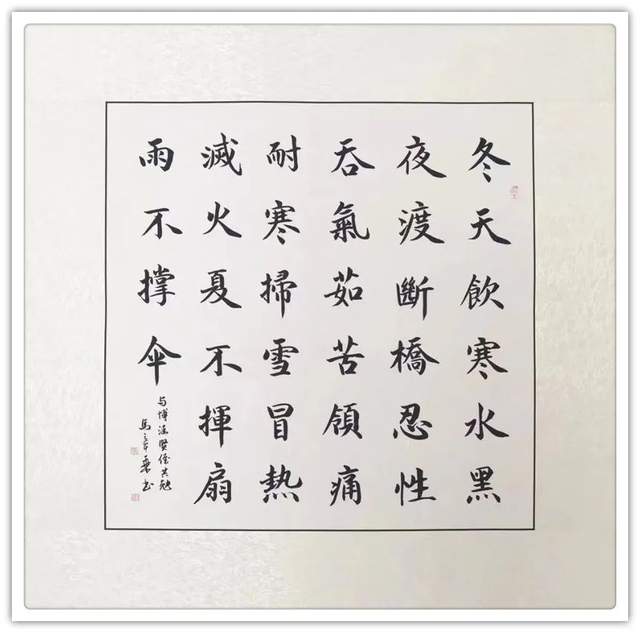 冬天飲寒水黑
夜渡斷橋忍性
吞氣茹苦領痛
耐寒掃雪冒熱
滅火夏不揮扇
雨不撑伞
与博涵賢侄共勉
馬年乘书